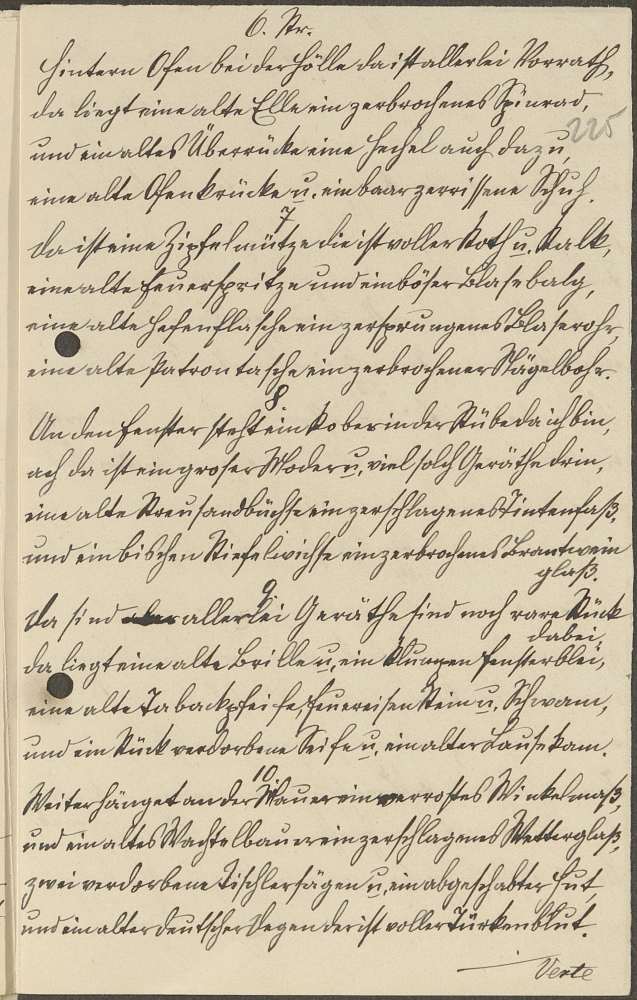 6. Str.
Hintern Ofen bei der Hölle da ist allerlei Vorrath,
225
da liegt eine alte Elle ein zerbrochenes Spinrad,
und ein altes Überrücke eine Hechel auch dazu,
eine alte Ofenkrücke u. ein baar zerrissene Schuh.
7
Da ist eine Zipfelmütze die ist voller Koth u. Kalk,
eine alte Feuerspritze und ein böser Blasebalg,
eine alte Hefenflasche ein zersprungenes Blaserohr,
eine alte Patrontasche ein zerbrochener Nägelbohr.
8
An den Fenster steht ein Kober in der Stübe da ich bin,
ach da ist ein groser Moder u. viel solch Geräthe drin,
eine alte Streusandbüchse ein zerschlagenes Tintenfaß,
und ein bischen Stiefelwichse ein zerbrochenes Brantwein
glaß.
9
Da sind allerlei Geräthe sind noch rare Stück
dabei,
da liegt eine alte Brille u. ein Klumpen Fensterblei,
eine alte Tabackpfeife, Feuereisen Stein u. Schwam,
und ein Stück verdorbene Seife u. ein alter Lausekam.
10.
Weiter hänget an der Mauer ein verrostes Winkelmaß,
und ein altes Wachtelbauer ein zerschlagenes Wetterglaß,
zwei verdorbene Tischlersägen u. ein abgeschabter Hut,
und ein alter deutscher Degen der ist voller Türkenblut.
Verte